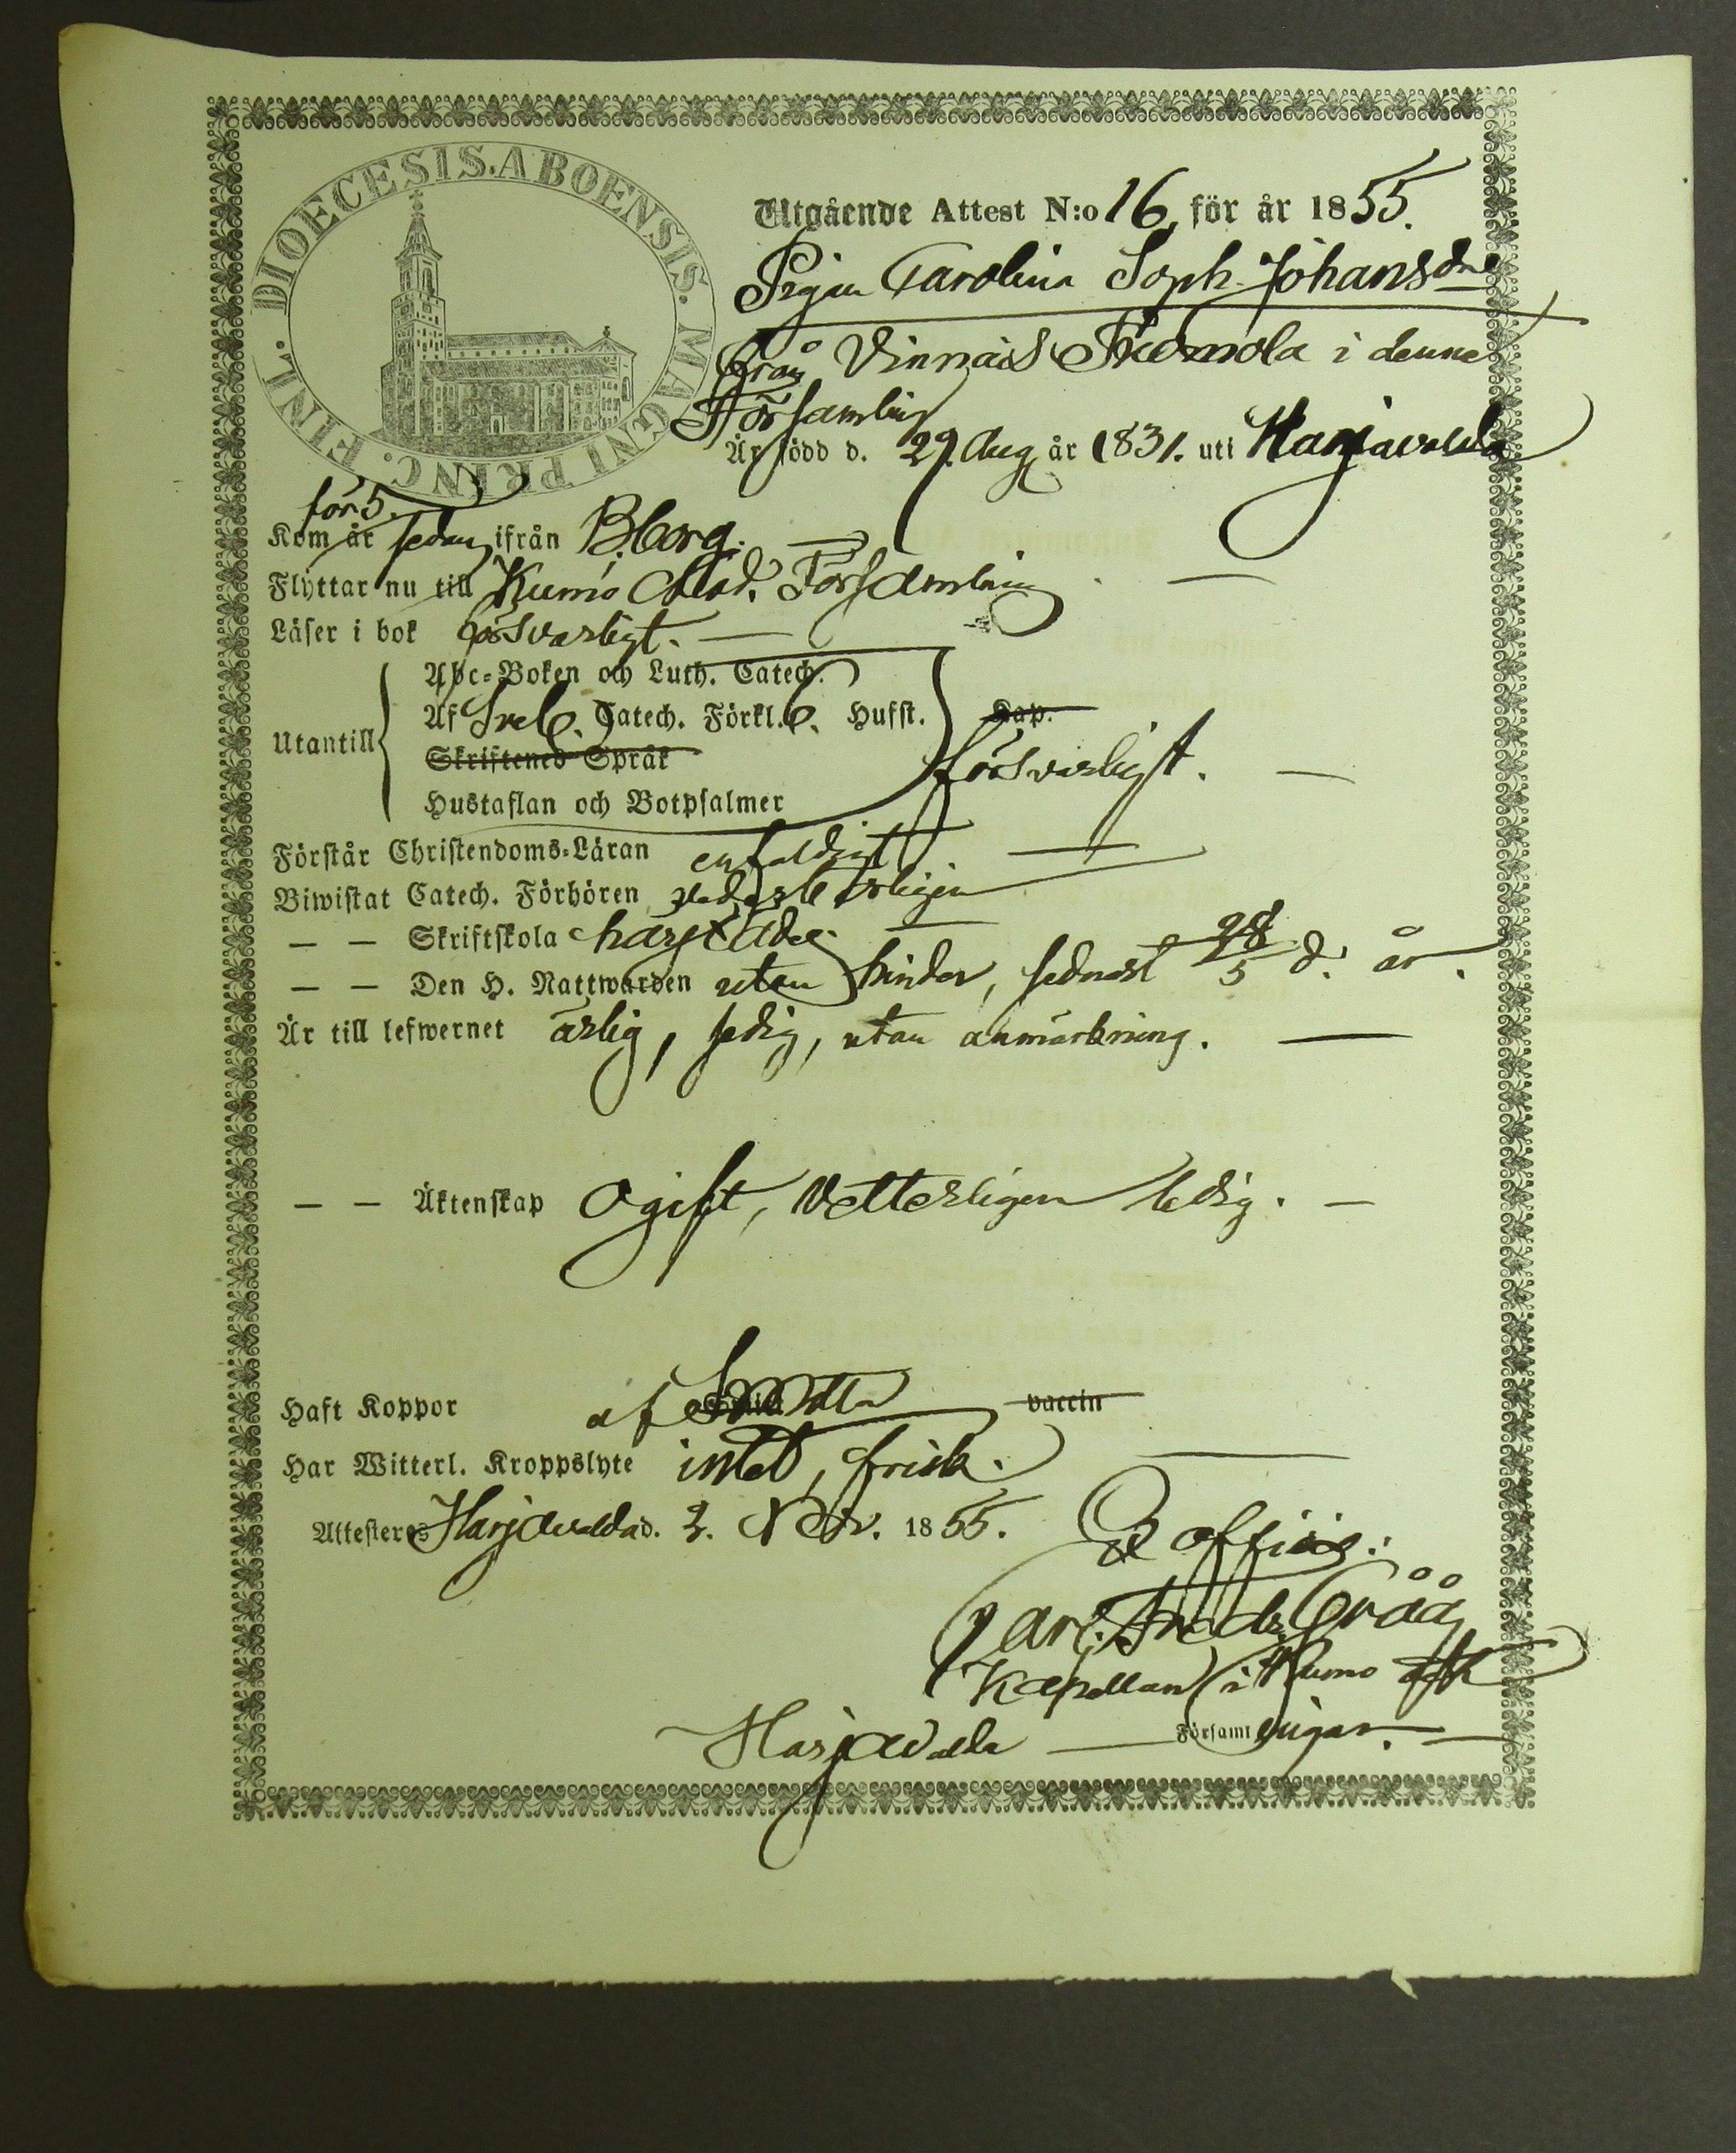 DIOECESIS. ABOENSIS. MAGNI PRINC. FINL.
Utgående Attest N:o 16, för år 1855.
Pigan Carolina Soph. Johansdr
från Vinnais i denna
Församling
Är född d. 29. Aug år 1831. uti Harjavalda
för 5.
Kom år sedan ifrån B:borg.
Flyttar nu till Kumo Församling
Läser i bok försvarligt.
Utantill
Abc-Boken och Luth. Catech.
Af Sveb. Catech. Förkl. Hufst. Kap.
Skriftenes Språk
försvarligt.
Hustaflan och Botpsalmer
Förstår Christendoms-Läran enfaldigt
Biwistat Catech. Förhören vederbörligen
— — Skriftskola
— — Den H. Nattwarden utan hinder, sednast 28/5 d. år.
Är till lefwernet ärlig, sedig, utan anmärkning.
— — Äktenskap Ogift, vetterligen ledig.
Haft Koppor af Smitta vaccin
Har Witterl. Kroppslyte intet, frisk.
Attesteras Harjavalda d. 2. Nov. 1855.
Ex officio:
Carl Fredr. Gråå
Kapellan i Kumo och
Harjavalda Församlingar.